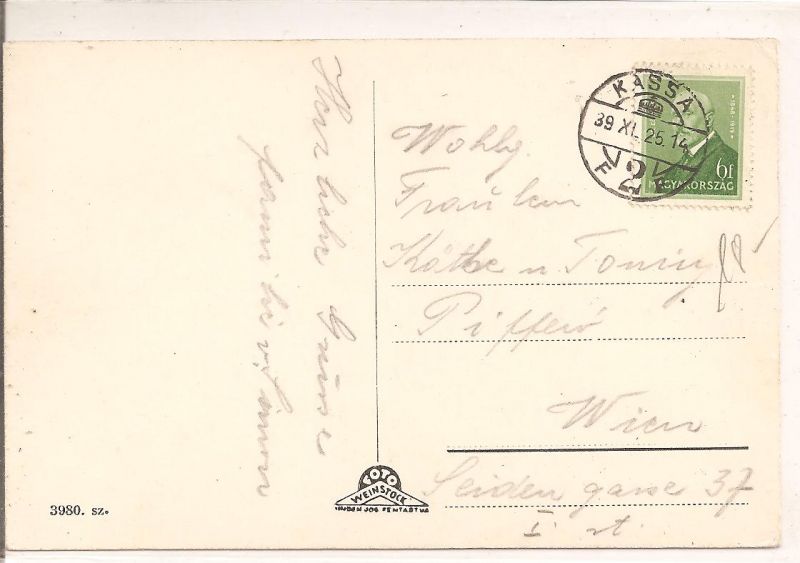 Herzliche Grüsse
KASSA
39 XI. 25. 14
2
1848-1919
6f
MAGYARORSZÁG
Wohlg.
Fräulein
Käthe u
Wien
Seidengasse 37
I. st.
FOTO
WEINSTOCK
MINDEN JOG FENTARTVA
3980. sz.